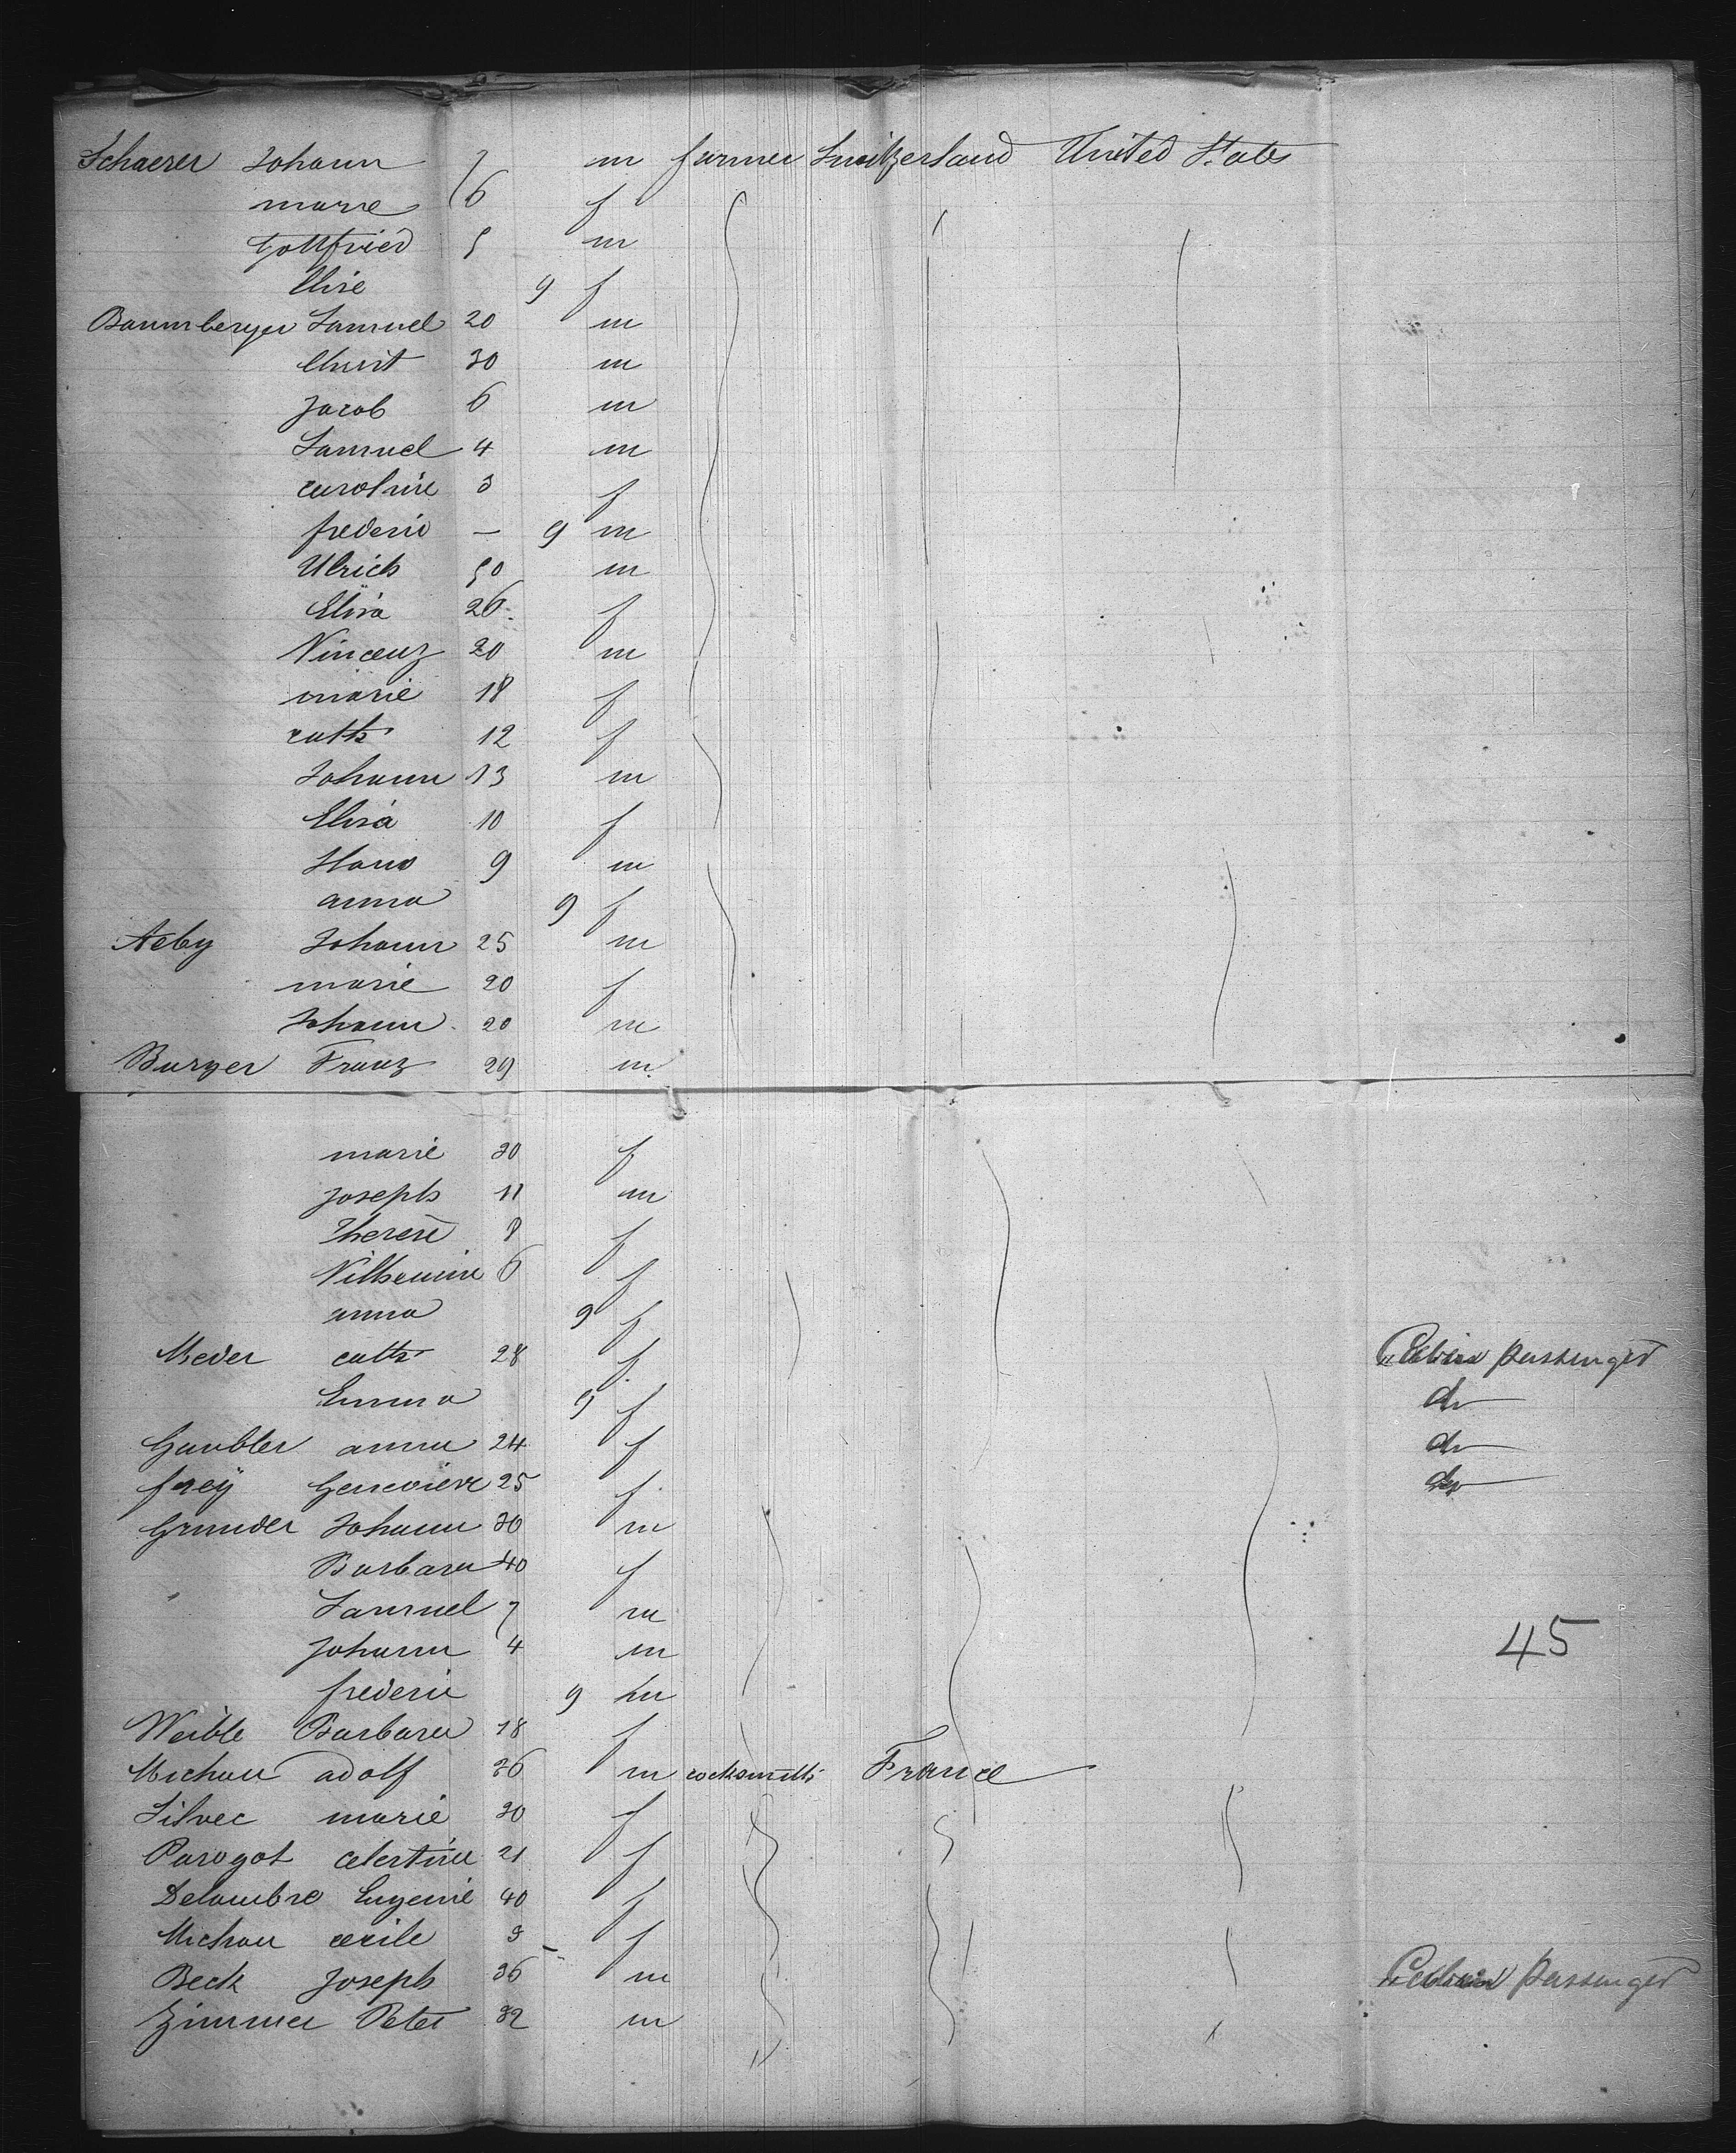 Schaerer Johann 7 m farmer Switzerland United States
marie 6 f
Gottfried 5 m
Elise 9 f
Baumberger Samuel 20 m
Christ 30 m
Jacob 6 m
Samuel 4 m
caroline 3 f
frederic — 9 m
Ulrich 50 m
Elisa 26 f
Vincenz 20 m
marie 18 f
cath 12 f
Johann 13 m
Elisa 10 f
Hans 9 m
anna 9 f
Aeby Johann 25 m
marie 20 f
Johann 20 m
Burger Franz 29 m
marie 30 f
Joseph 11 m
Therese 8 f
Wilhemine 6 f
anna 9 f
Meder cath 28 f Cabin passenger
Emma 9 f do
Gaubler anna 24 f do
frey Genevieve 25 f do
Grunder Johann 30 m
Barbara 40 f
Samuel 7 m
Johann 4 m 45
frederic 9 m
Weible Barbara 18 f
Michau adolf 36 m locksmith France
Silvec marie 30 f
Parogot celestine 21 f
Delambre Eugenie 40 f
Michau cecile 3 f
Beck Joseph 36 m Cabin passenger
Zimmer Peter 32 m